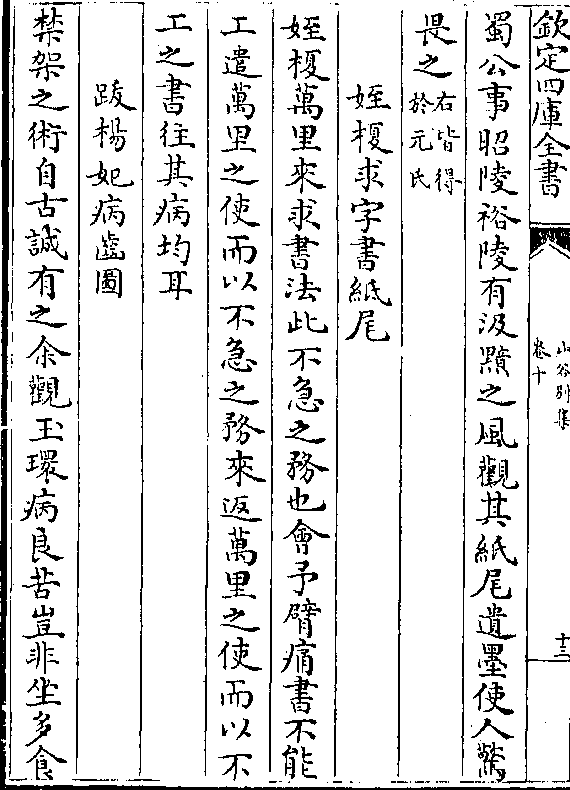 欽定四庫全書
山谷別集
卷十
十三
蜀公事昭陵裕陵有汲黯之風觀其紙尾遺墨使人驚
畏之右皆得於元氏
姪榎求字書紙尾
姪榎萬里來求書法此不急之務也會予臂痛書不能
工遣萬里之使而以不急之務來返萬里之使而以不
工之書往其病均耳
跋楊妃病齒圖
禁架之術自古誠有之余觀玉環病良苦豈非坐多食